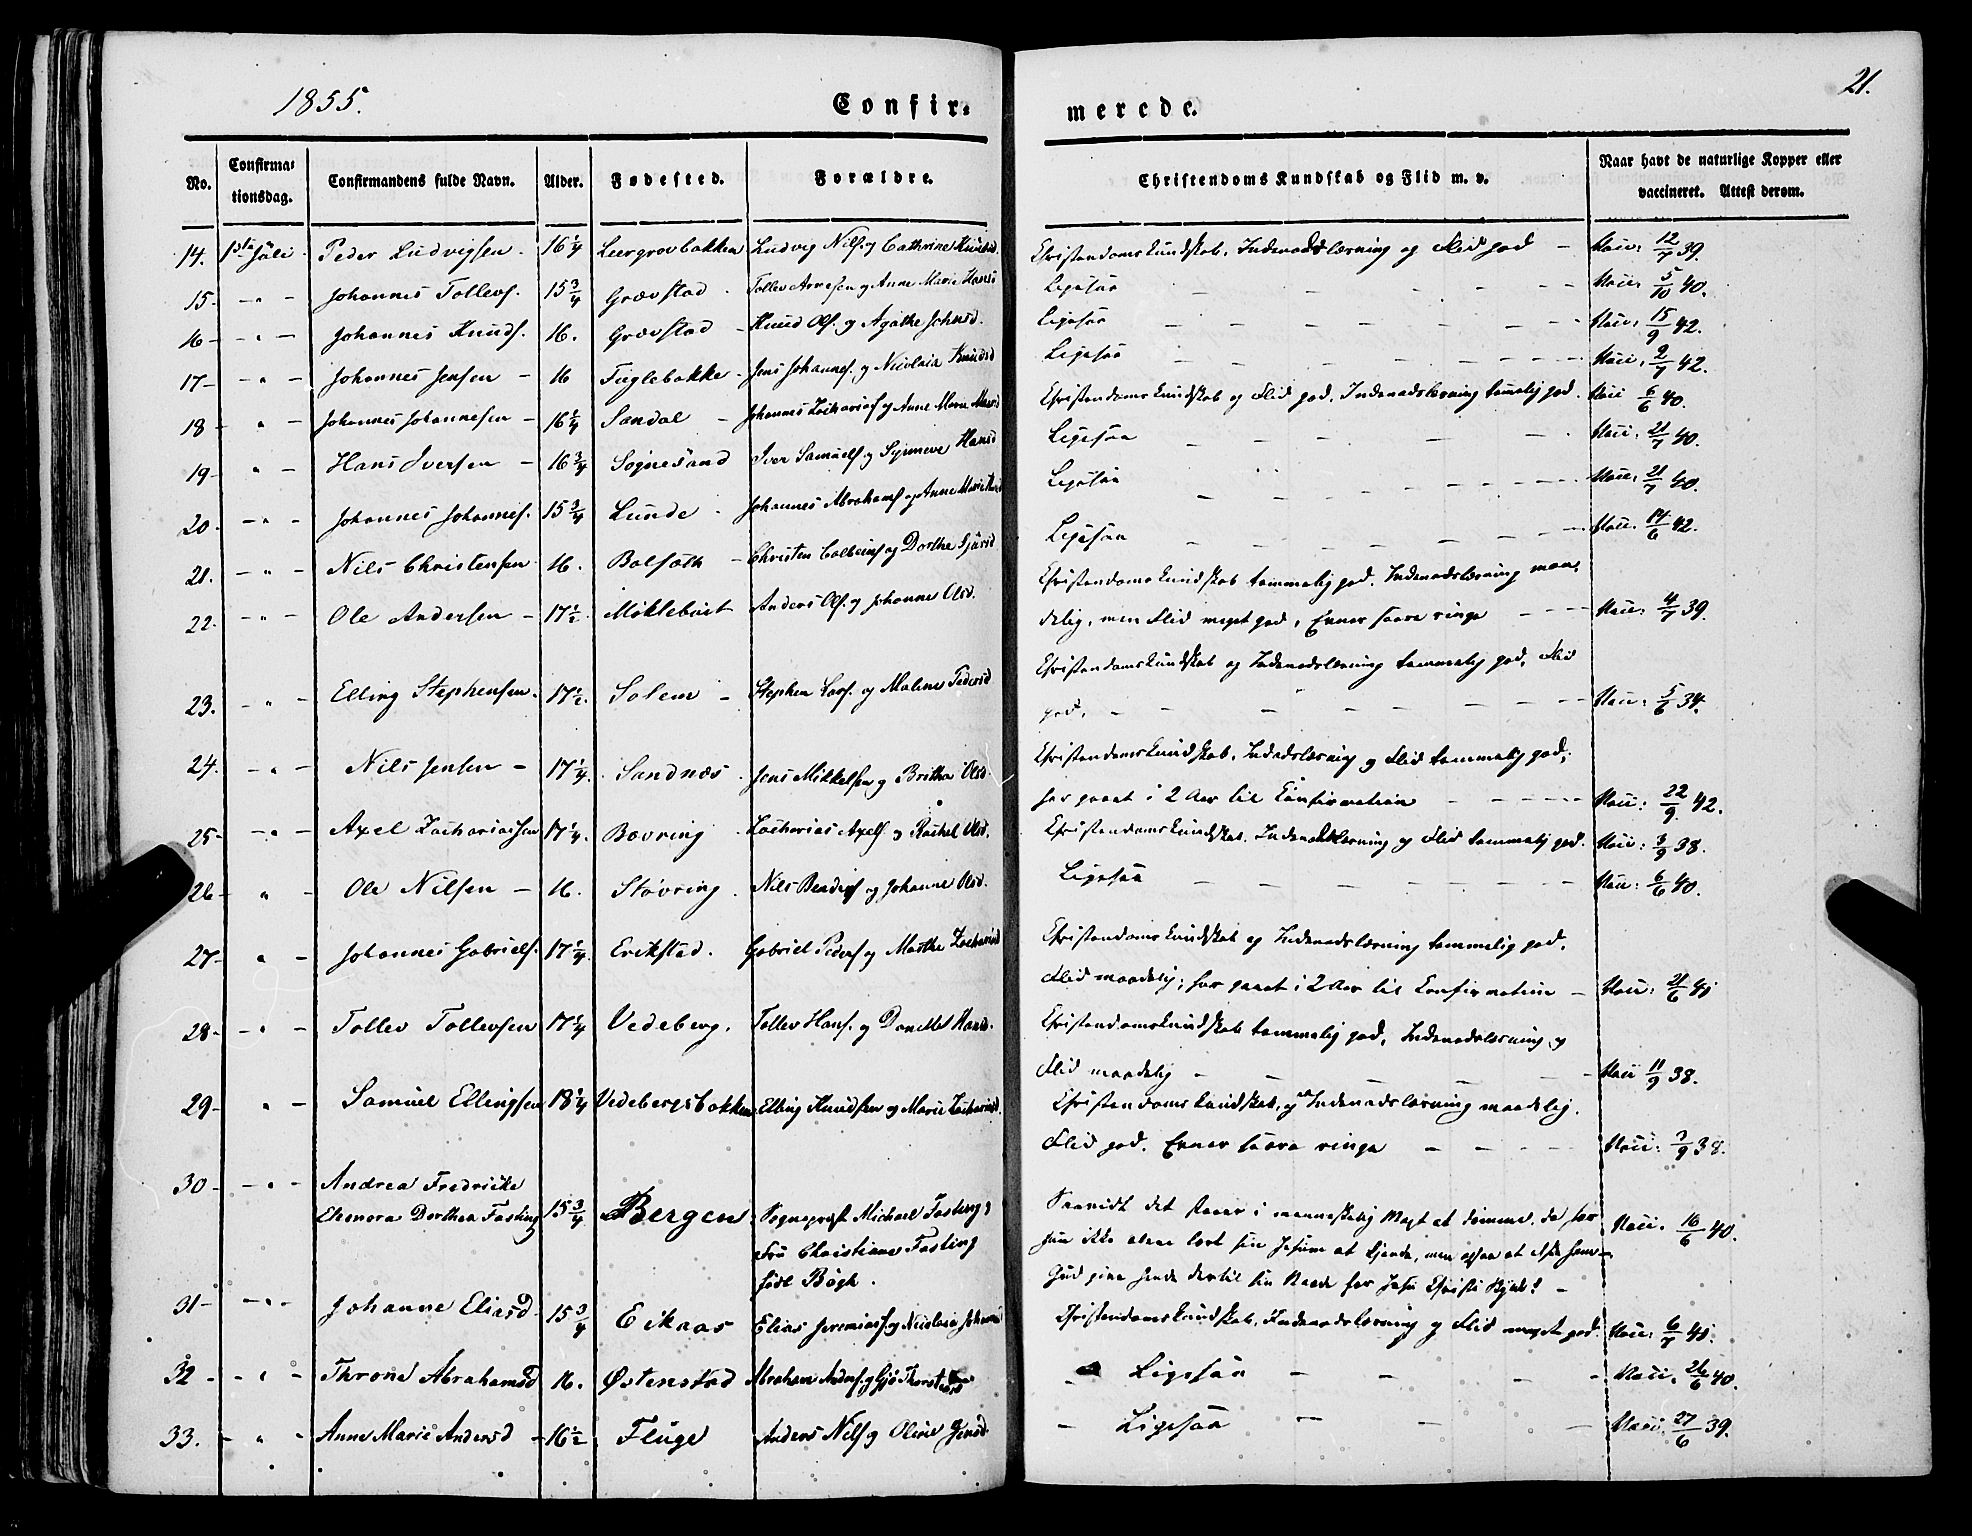 1855.
Confir-
merede.
21.
No.
Confirma-
tionsdag.
Confirmandens fulde Navn.
Alder.
Fødested.
Forældre.
Christendoms Kundskab og Flid m. v.
Naar havt de naturlige Kopper eller
vaccineret. Attest derom.
14. 1ste Juli Peder Ludvigsen 16 1/4 Leergrovbakken Ludvig Nils. og Cathrine Knudsd. Christendomskundskab, Indenadslæsning og Flid god - Vacc: 12/7 39.
15 - " - Johannes Tollevs. 15 3/4 Grovstad Tollev Arnesen og Anne Marie Hansd Ligesaa - Vacc: 5/10 40.
16 - " - Johannes Knuds. 16. Grovstad - Knud Ols. og Agathe Johnsd. Ligesaa - Vacc: 15/9 42.
17 - " - Johannes Jensen - 16 Fuglebakke - Jens Johannes. og Nicolaia Knudsd Ligesaa - Vacc: 2/7 42.
18 - " - Johannes Johannesen - 16 1/4 Sandal - Johannes Zacharias og Anne Marie Christendomskundskab og Flid god, Indenadslæsning temmelig god. Vacc 6/6 40.
19 - " - Hans Iversen - 16 3/4 Sognesand Iver Samuels og Synneve Hansd Ligesaa - Vacc: 21/7 40.
20 - " - Johannes Johannes. 15 3/4 Lunde Johannes Abrahams og Anne Marie Ligesaa - Vacc: 21/7 40.
21. - " - Nils Christensen 16. Bolsæth - Christen Colbeins og Dorthe Ligesaa - Vacc: 14/6 42.
22. - " - Ole Andersen - 17 1/2 Møklebust Anders Ols. og Johanne Olsd. Christendomskundskab temmelig god. Indenadslæsning maa-
delig, men Flid meget god, Evner saare ringe - Vacc: 4/7 39.
23. - " Elling Stephensen. 17 1/2. Solem - Stephen Lars. og Maline Pedersd Christendomskundskab og Indenadslæsning temmelig god, Flid
god. - Vacc: 5/6 34.
24. - " - Nils Jensen - 17 1/4. Sandnæs Jens Mikkelsen og Brithe Olsd. Christendomskundskab, Indadslæsning og Flid temmelig god;
har gaaet i 2 Aar til Confirmation - Vacc: 22/9 42.
25 - " - Axel Zachariassen 17 1/4. Bovring Zacharias Axels. og Rachel Olsd. Christendomskundskab, Indenadslæsning og Flid temmelig god. Vacc: 3/9 38.
26 - " - Ole Nilsen - 16. Støvring Nils Bendix og Johanne Olsd. Ligesaa - Vacc: 6/6 40.
27 - " - Johannes Gabriels. 17 1/4 Erikstad. Gabriel Peders og Marthe Christendomskundskab og Indenadslæsning temmelig god,
Flid maadelig; har gaaet i 2 Aar til Confirmation - Vacc: 21/6 41
28 - " - Tollev Tollevsen 17 1/4 Vedeberg. Tollev Hans. og Donette Hansd. Christendomskundskab temmelig god, Indenadslæsning og
Flid maadelig - Vacc 11/9 38.
29 - " - Samuel Ellingsen 18 1/4 Vedebergsbakken Elling Knudsen og Marie Zachariasd. Christendomskundskab og Indenadslæsning maadelig.
Flid god. Evner saare ringe - Vacc: 7/9 38.
30 - " - Andrea Fredrikke
Elenora Dorthea Fasting 15 3/4 Bergen Sognepræst Michael Fasting og
Fru Christiane Fasting
født Bøgh.
Saavidt det staaer i menneskelig Magt at dømme, da har
hun ikke alene lært sin Jesum at kjende, men ogsaa at elske ham -
Gud give hende dertil sin Naade for Jesu Christi Skyld! - Vacc: 16/6 40.
31 - " - Johanne Eliasd 15 3/4 Eikaas Elias Jeremias og Nicolaia Christendomskundskab, Indenadslæsning og Flid meget god. Vacc: 6/7 41.
32 - " - Throne Abrahamsd 16. Østenstad Abraham Anders. og Gjø Thorstensd - Ligesaa - Vacc: 26/6 40.
33. - " - Anne Marie Andersd - 16 1/2 Fluge Anders Nils og Oline Jensd - Ligesaa - Vacc: 27/6 39.